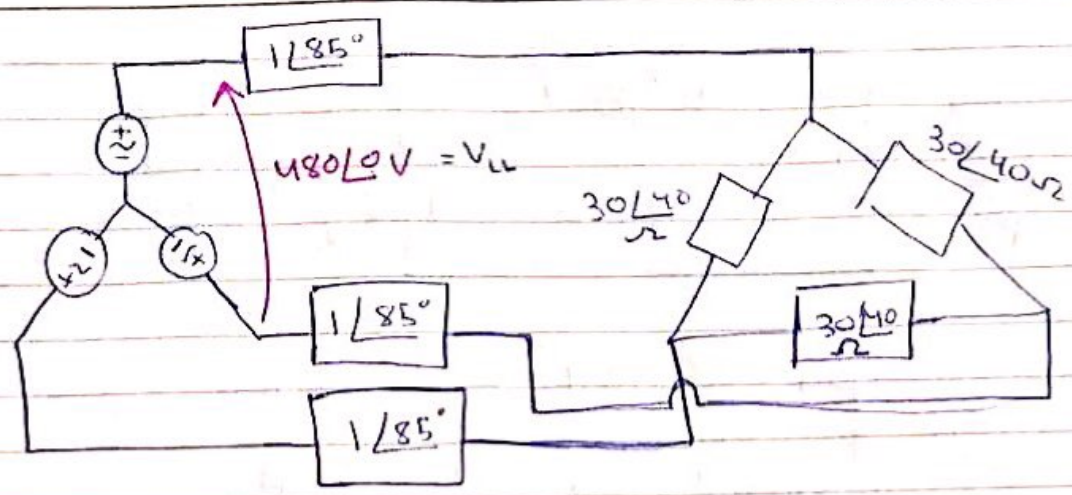 1∠85°
480∠0 V = V_LL
30∠40 Ω
30∠40 Ω
1∠85°
30∠40 Ω
1∠85°